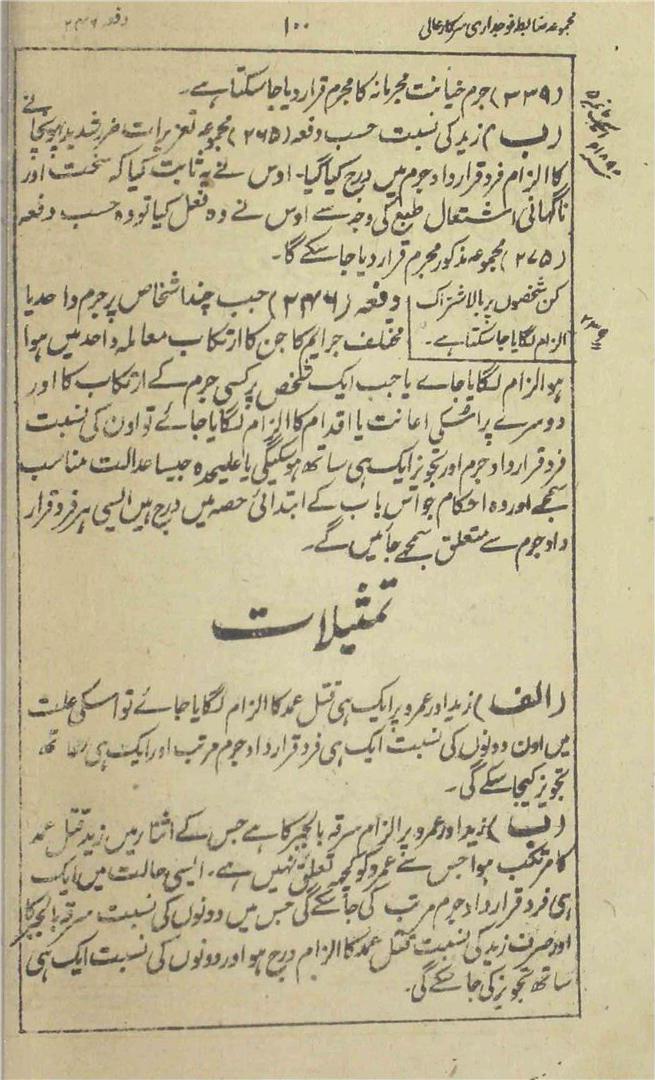 مجموعہ ضابطہ فوجداری سرکار عالی
۱۰۰
دفعہ ۲۴۶
(۳۳۹) جرم خیانت مجرمانہ کا مجرم قرار دیا جاسکتا ہے۔
(ب) زید کی نسبت حسب دفعہ (۲۶۵) مجموعہ تعزیرات ضرر شدید پہونچانے
کا الزام فرد قرارداد جرم میں درج کیا گیا۔ اوس نے یہ ثابت کیا کہ سخت اور
ناگہانی اشتعال طبع کی وجہ سے اوس نے وہ فعل کیا تو وہ حسب دفعہ
(۲۷۵) مجموعہ مذکور مجرم قرار دیا جا سکے گا۔
کن شخصوں پر بالاشتراک
الزام لگایا جاسکتا ہے۔
دفعہ (۲۴۶) جب چند اشخاص پر جرم واحد یا
مختلف جرایم کا جن کا ارتکاب معاملہ واحد میں ہوا
ہو الزام لگایا جاے یا جب ایک شخص پر کسی جرم کے ارتکاب کا اور
دوسرے پر اسکی اعانت یا اقدام کا الزام لگایا جائے تو اون کی نسبت
فرد قرارداد جرم اور تجویز ایک ہی ساتھ ہوسکیگی یا علیحدہ جیسا عدالت مناسب
سمجھے اور وہ احکام جو اس باب کے ابتدائی حصہ میں درج ہیں ایسی ہر فرد قرار
داد جرم سے متعلق سمجھے جائیں گے۔
تمثیلات
(الف) زید اور عمرو پر ایک ہی قتل عمد کا الزام لگایا جائے تو اسکی علت
میں اون دونوں کی نسبت ایک ہی فرد قرارداد جرم مرتب اور ایک ہی ساتھ
تجویز کیجا سکے گی۔
(ب) زید اور عمرو پر الزام سرقہ بالجبر کا ہے جس کے اثنار میں زید قتل عمد
کا مرتکب ہوا جس سے عمرو کو کچھ تعلق نہیں ہے۔ ایسی حالت میں ایک
ہی فرد قرارداد جرم مرتب کی جاسکے گی جس میں دونوں کی نسبت سرقہ بالجبر کا
اور صرف زید کی نسبت قتل عمد کا الزام درج ہو اور دونوں کی نسبت ایک ہی
ساتھ تجویز کی جاسکے گی۔